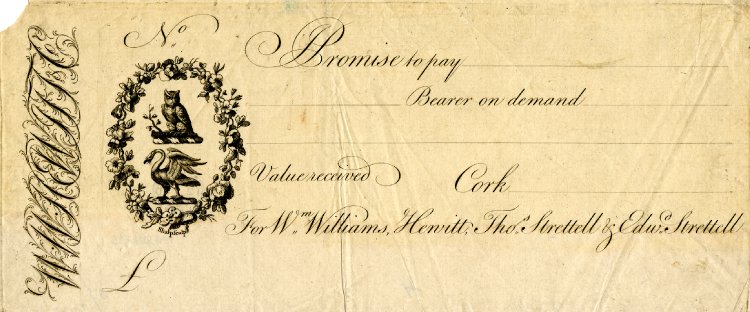 No.
I Promise to pay
Bearer on demand
Value received Cork
For Wm. Williams, Hewitt, Thos. Strettell & Edwd. Strettell
£